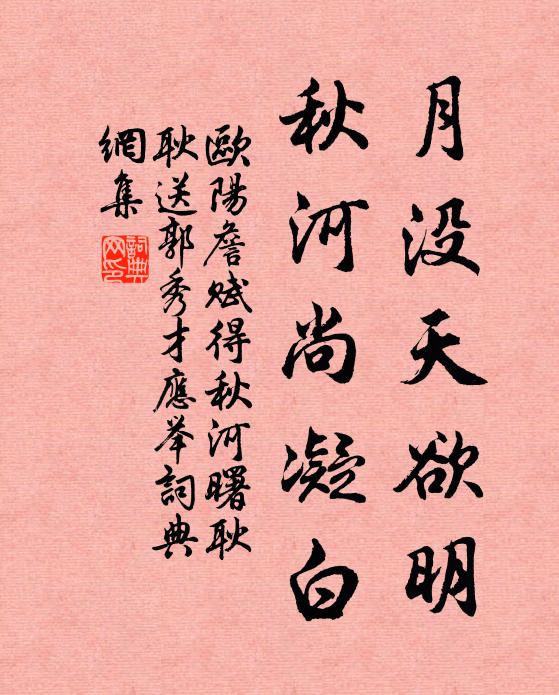 月没天欲明
秋河尚凝白
歐陽詹賦得秋河曙耿
耿送郭秀才應举詞典
網集
詞典
网印